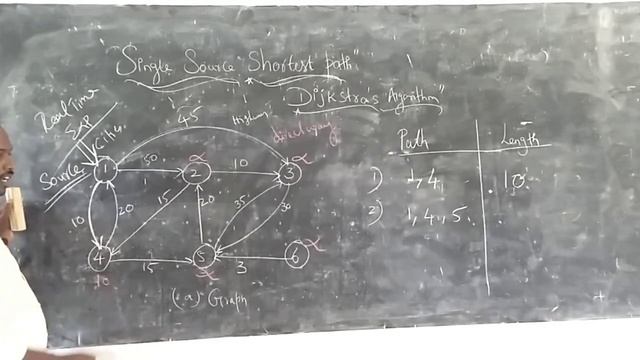 "Single Source Shortest path"
Dijkstra's Algorithm"
Real Time
Cities
Source
45
Highway
1
50
2
α
10
3
α
10
20
15
20
35
30
4
10
15
5
α
3
6
α
(a) Graph
Path Length
1) 1,4 10
2) 1,4,5